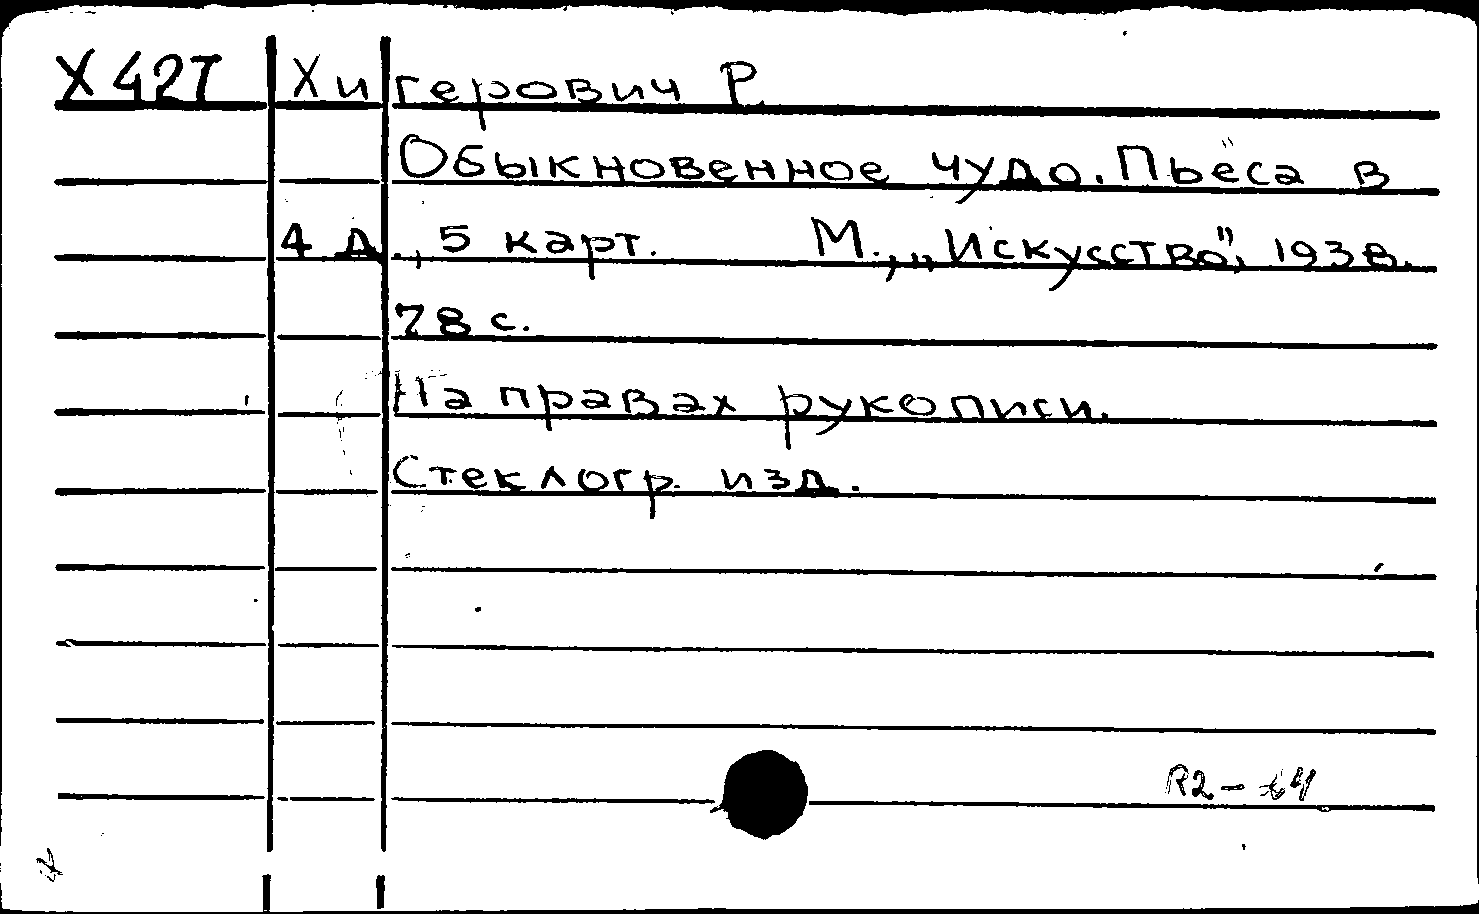 Х42Т Хигерович Р.
Обыкновенное чудо. Пьеса в
4 д., 5 карт. М., „Искусство", 1938.
78 с.
На правах рукописи.
Стеклогр. изд.
R2-